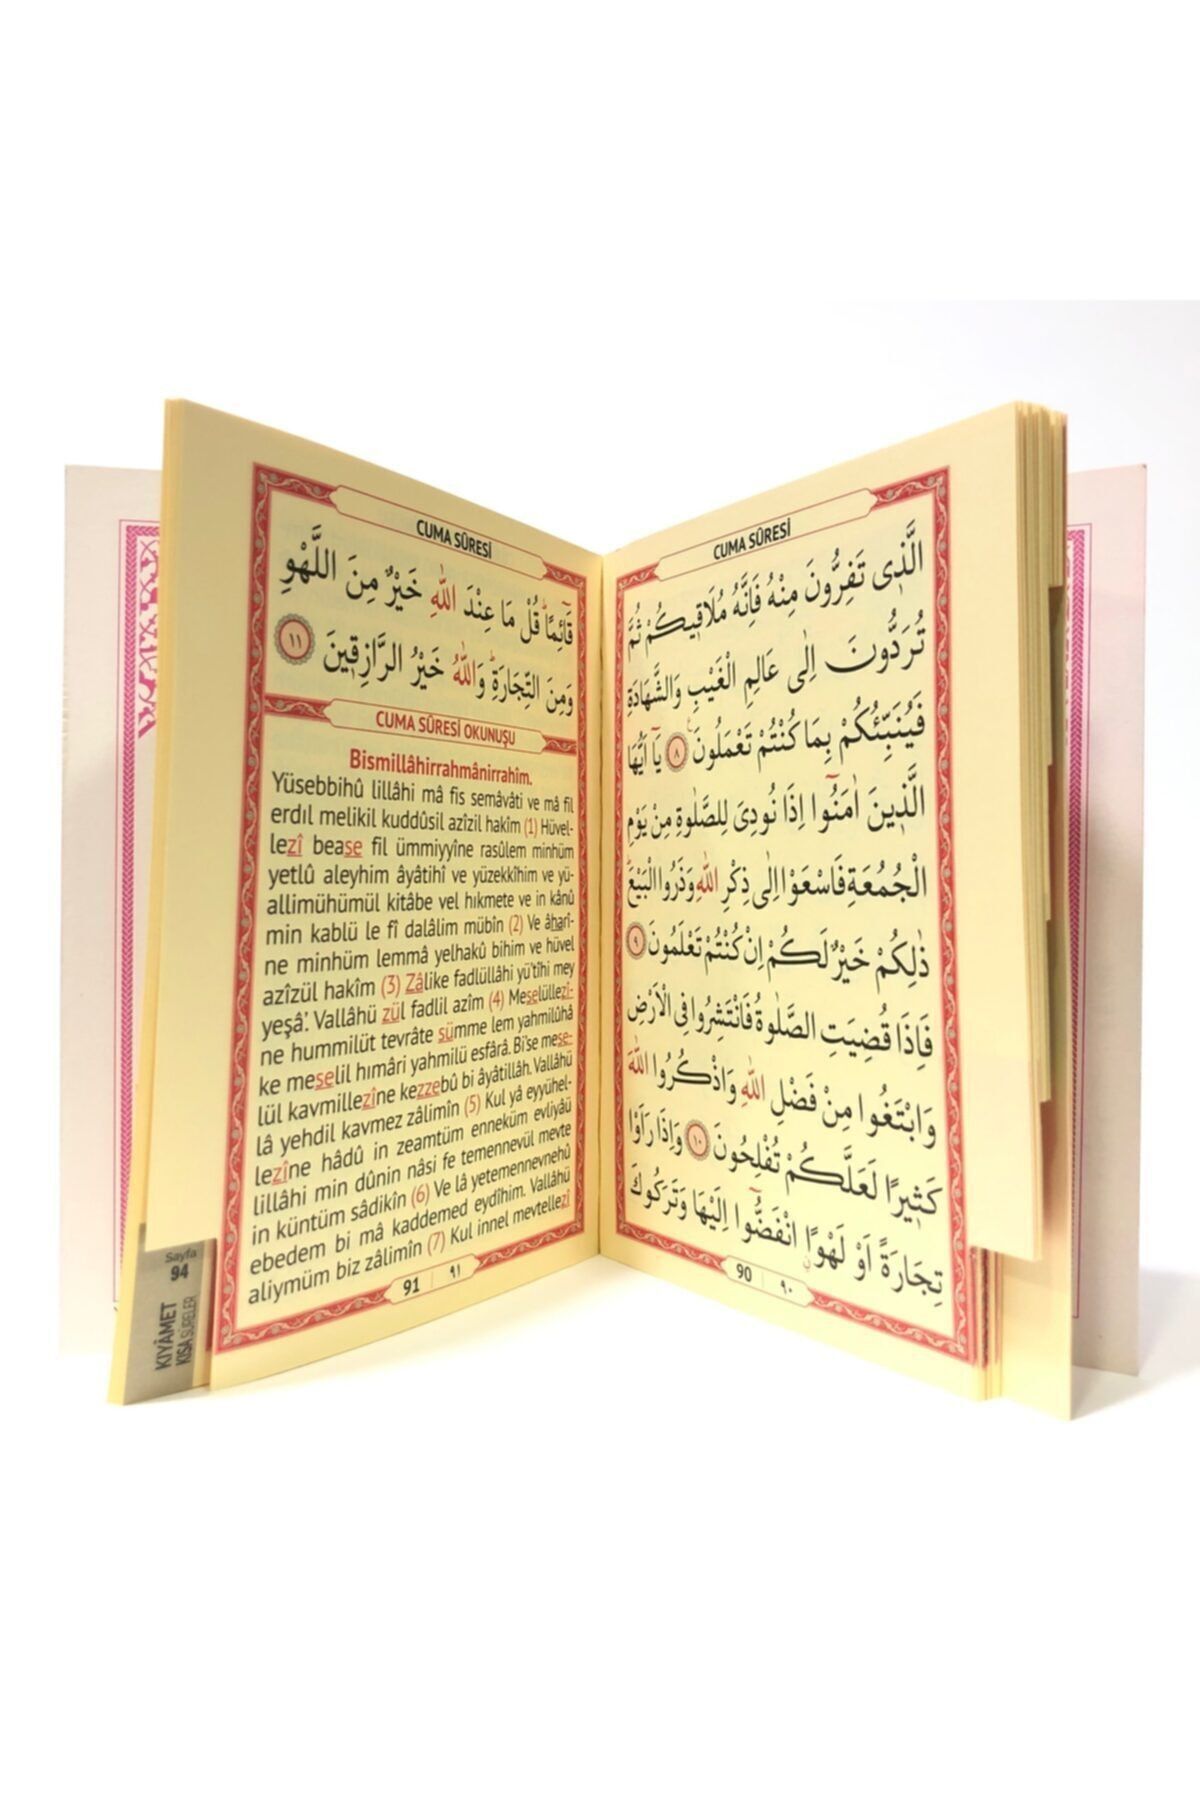 CUMA SÛRESİ
الَّذٖى تَفِرُّونَ مِنْهُ فَاِنَّهُ مُلَاقٖيكُمْ ثُمَّ
تُرَدُّونَ اِلٰى عَالِمِ الْغَيْبِ وَالشَّهَادَةِ
فَيُنَبِّئُكُمْ بِمَا كُنْتُمْ تَعْمَلُونَ ٨ يَٓا اَيُّهَا
الَّذٖينَ اٰمَنُٓوا اِذَا نُودِىَ لِلصَّلٰوةِ مِنْ يَوْمِ
الْجُمُعَةِ فَاسْعَوْا اِلٰى ذِكْرِ اللّٰهِ وَذَرُوا الْبَيْعَ
ذٰلِكُمْ خَيْرٌ لَكُمْ اِنْ كُنْتُمْ تَعْلَمُونَ ٩
فَاِذَا قُضِيَتِ الصَّلٰوةُ فَانْتَشِرُوا فِى الْاَرْضِ
وَابْتَغُوا مِنْ فَضْلِ اللّٰهِ وَاذْكُرُوا اللّٰهَ
كَثٖيرًا لَعَلَّكُمْ تُفْلِحُونَ ١٠ وَاِذَا رَاَوْا
تِجَارَةً اَوْ لَهْوًا انْفَضُّٓوا اِلَيْهَا وَتَرَكُوكَ
90 ٩٠
CUMA SÛRESİ
قَٓائِمًا قُلْ مَا عِنْدَ اللّٰهِ خَيْرٌ مِنَ اللَّهْوِ
وَمِنَ التِّجَارَةِ وَاللّٰهُ خَيْرُ الرَّازِقٖينَ ١١
CUMA SÛRESİ OKUNUŞU
Bismillâhirrahmânirrahîm.
Yüsebbihû lillâhi mâ fis semâvâti ve mâ fil
erdıl melikil kuddûsil azîzil hakîm (1) Hüvel-
lezî bease fil ümmiyyîne rasûlem minhüm
yetlû aleyhim âyâtihî ve yüzekkîhim ve yü-
allimühümül kitâbe vel hıkmete ve in kânû
min kablü le fî dalâlim mübîn (2) Ve âharî-
ne minhüm lemmâ yelhakû bihim ve hüvel
azîzül hakîm (3) Zâlike fadlüllâhi yü'tîhi mey
yeşâ'. Vallâhü zül fadlil azîm (4) Meselüllezî-
ne hummilüt tevrâte sümme lem yahmilûhâ
ke meselil hımâri yahmilü esfârâ. Bi'se mese-
lül kavmillezîne kezzebû bi âyâtillâh. Vallâhü
lâ yehdil kavmez zâlimîn (5) Kul yâ eyyühel-
lezîne hâdû in zeamtüm enneküm evliyâü
lillâhi min dûnin nâsi fe temennevül mevte
in küntüm sâdikîn (6) Ve lâ yetemennevnehû
ebedem bi mâ kaddemed eydîhim. Vallâhü
aliymüm biz zâlimîn (7) Kul innel mevtellezî
91 ٩١
Sayfa
94
KIYÂMET
KISA SÛRELER